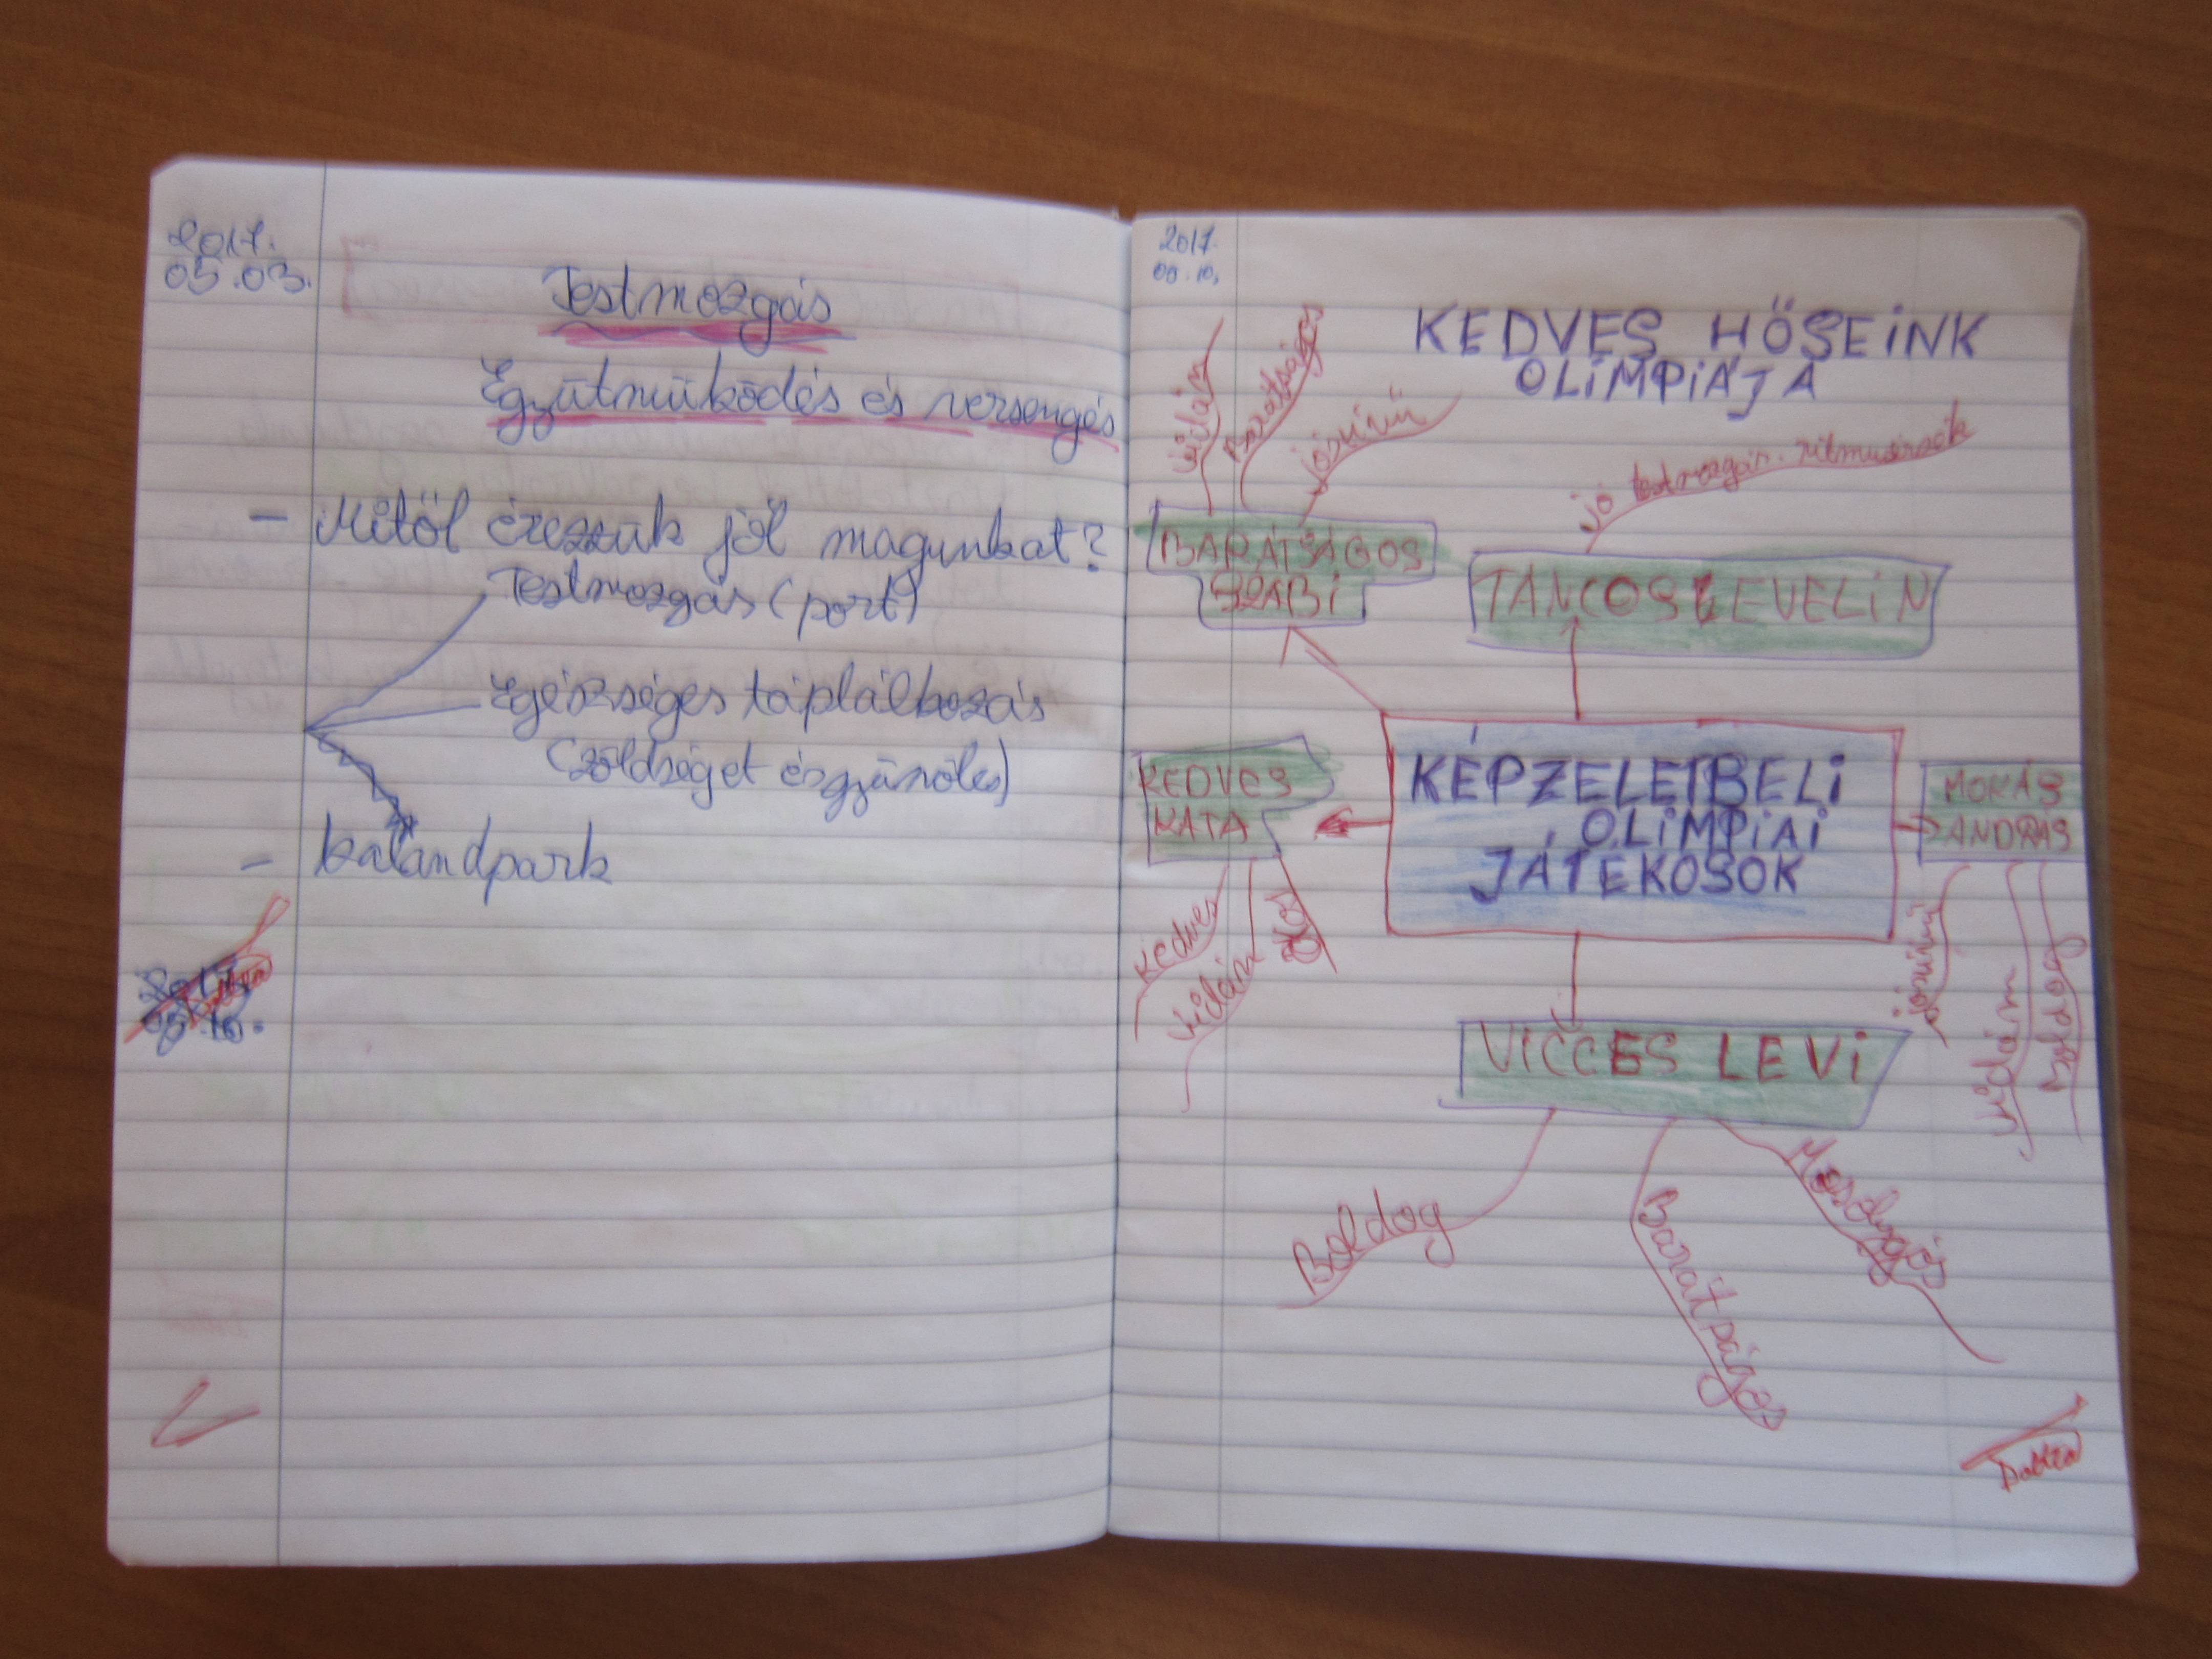 2017.
05.03.
Testmozgás
Együtmüködés és versengés
- Mitől érezzük jól magunkat?
Testmozgás (port)
Egészséges táplálkozás
(zöldséget és gyümölcs)
- kalandpark
2017.
05.10.
2017.
05.10.
KEDVES HŐSEINK
OLIMPIÁJA
vidám
Barátságos
jószívű
jó testmozgás.
BARÁTSÁGOS
SZABI
TÁNCOS EVELIN
KEDVES
KATA
KÉPZELETBELI
OLIMPIAI
JÁTÉKOSOK
MÓKÁS
ANDRÁS
kedves
vidám
jószívű
vidám
Boldog
VICCES LEVI
Boldog
Mosolygós